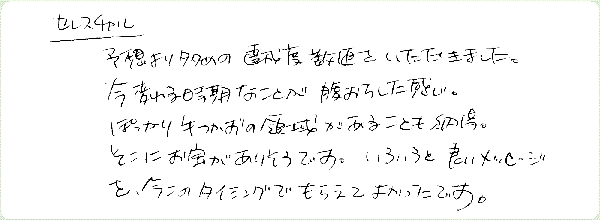 セレスチャル
予想より多めの達成度数値をいただきました。
今変わる時期なことが腹おちした感じ。
ぽっかり手つかずの領域があることも納得。
そこにお宝がありそうです。いろいろと良いメッセージ
を、今このタイミングでもらえてよかったです。